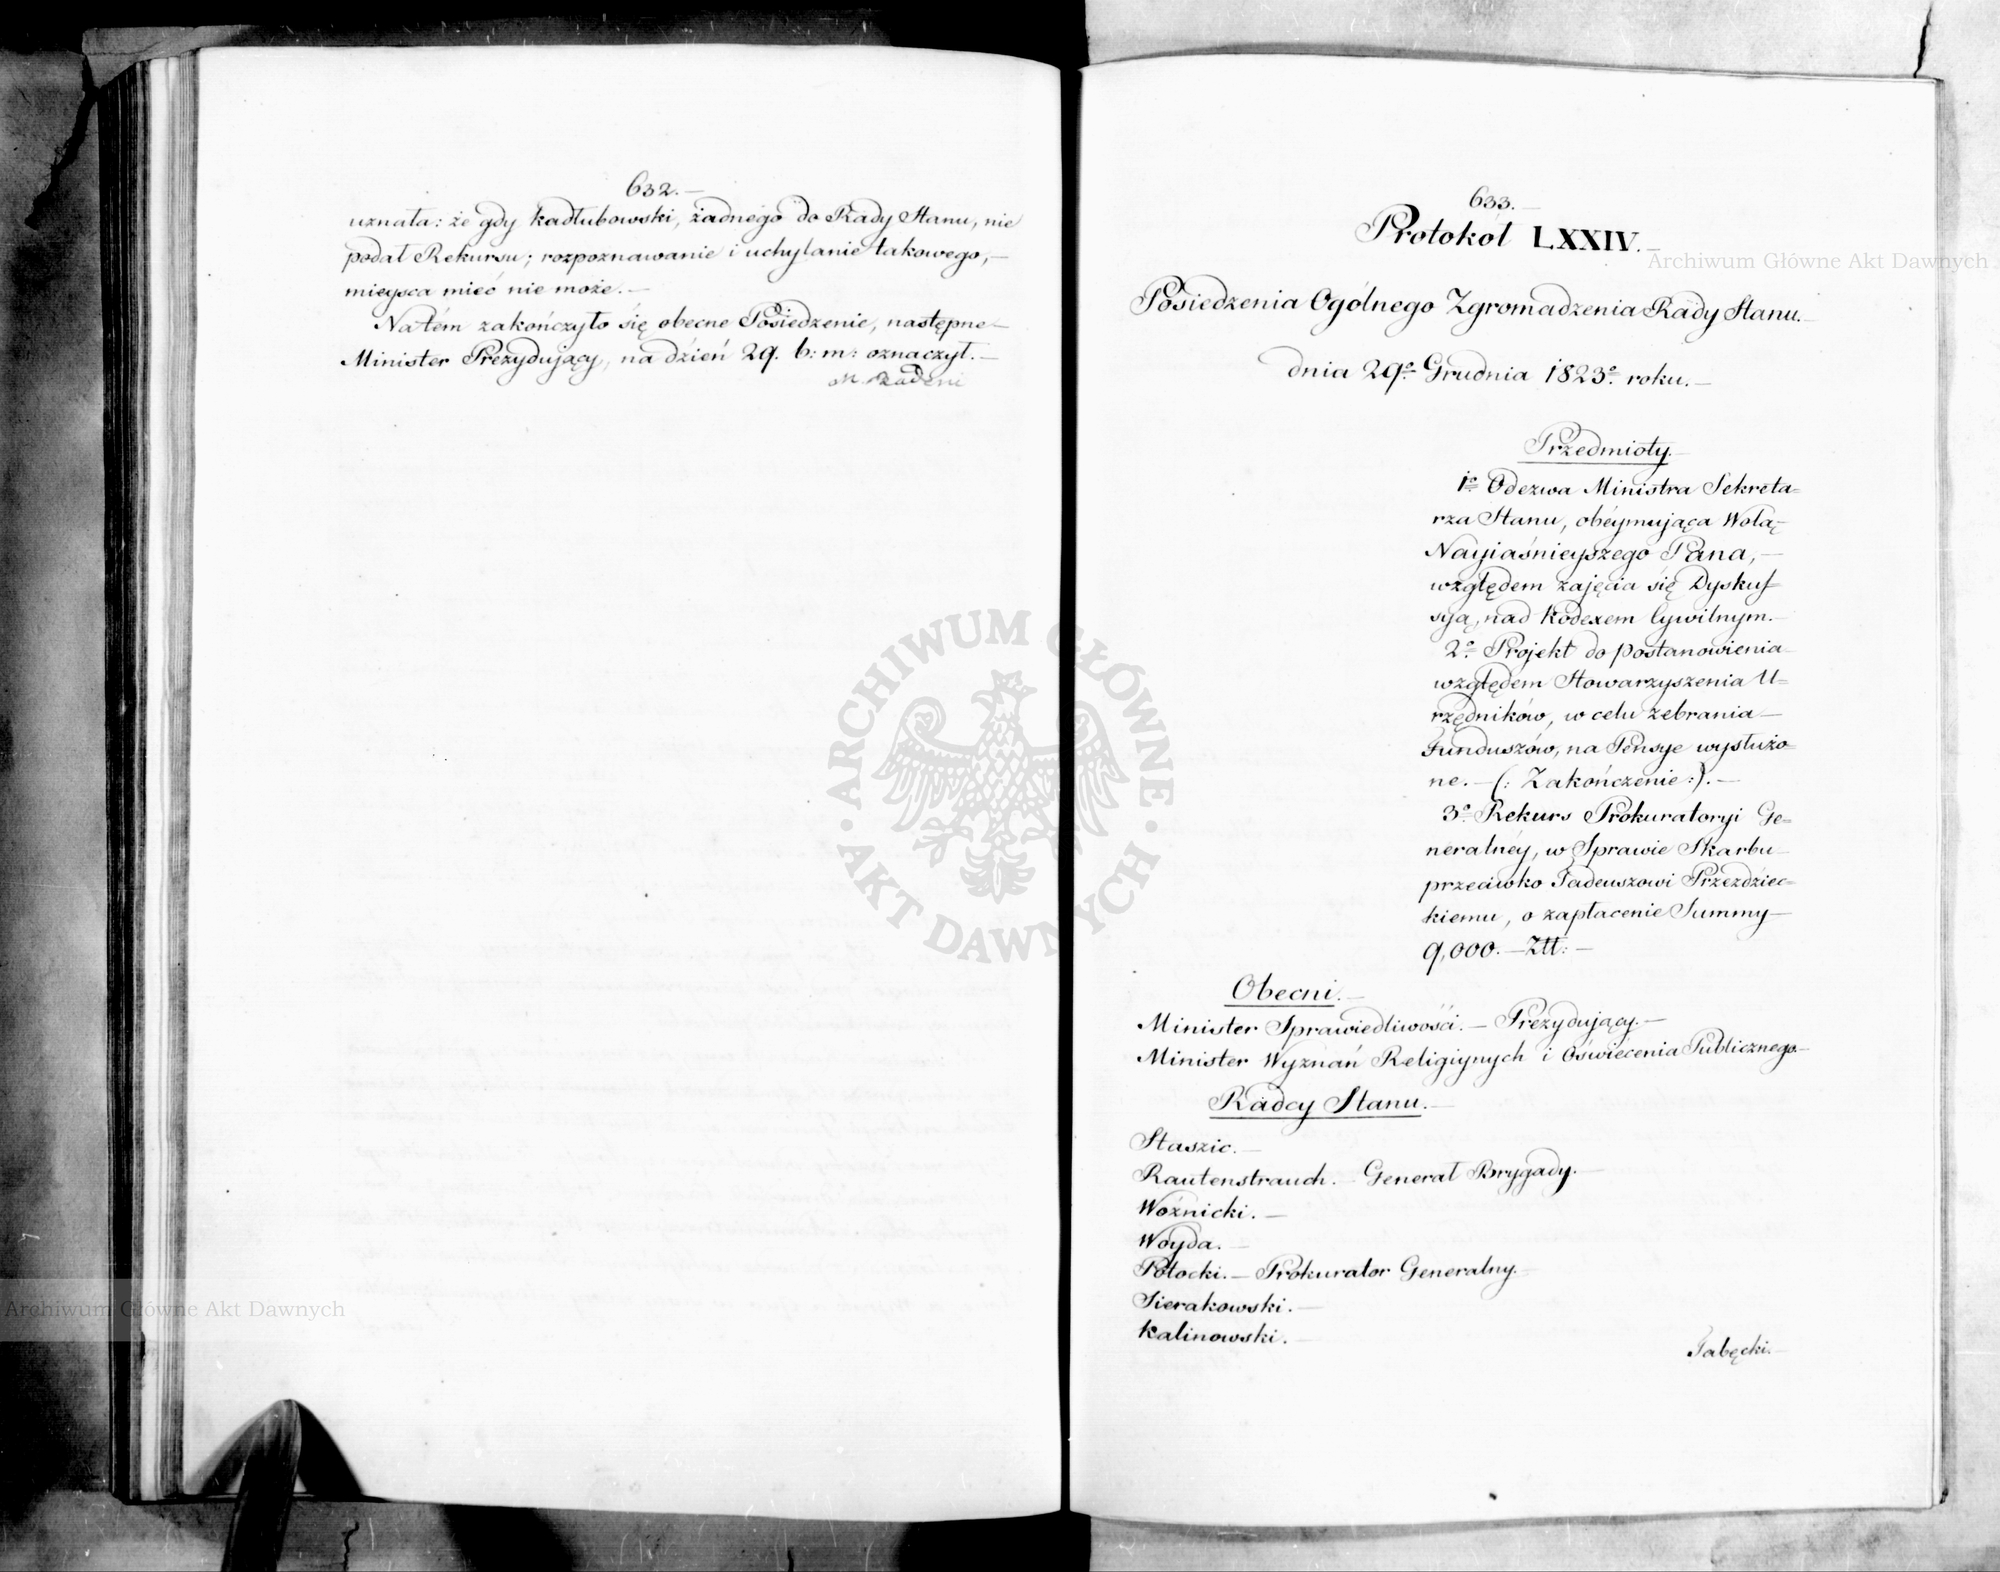 632.—
uznała: że gdy Kadłubowski, żadnego do Rady Stanu, nie
podał Rekursu; rozpoznawanie i uchylanie takowego,—
mieysca mieć nie może.—
Na tém zakończyło się obecne Posiedzenie, następne—
Minister Prezydujący, na dzień 29. b: m: oznaczył.—
633.—
Protokół LXXIV.—
Posiedzenia Ogólnego Zgromadzenia Rady Stanu.—
dnia 29º Grudnia 1823º roku.—
Przedmioty.—
1º Odezwa Ministra Sekreta=
rza Stanu, obéymująca Wolą—
Nayjaśnieyszego Pana,—
względem zajęcia się Dyskus=
syą, nad Kodexem Cywilnym.—
2º Projekt do postanowienia—
względem Stowarzyszenia U=
rzędników, w celu zebrania—
Funduszów, na Pensye wysłużo=
ne.—(: Zakończenie:).—
3º Rekurs Prokuratoryi Ge=
neralnéy, w Sprawie Skarbu—
przeciwko Tadeuszowi Przezdziec=
kiemu, o zapłacenie Summy—
9,000.—Złł:—
Obecni.—
Minister Sprawiedliwości.— Prezydujący.—
Minister Wyznań Religiynych i Oświecenia Publicznego.—
Radcy Stanu.—
Staszic.—
Rautenstrauch.— Generał Brygady.—
Woźnicki.—
Woyda.—
Potocki.— Prokurator Generalny.—
Sierakowski.—
Kalinowski.—
Tabęcki.—
Archiwum Główne Akt Dawnych
Archiwum Główne Akt Dawnych
ARCHIWUM GŁÓWNE
AKT DAWNYCH